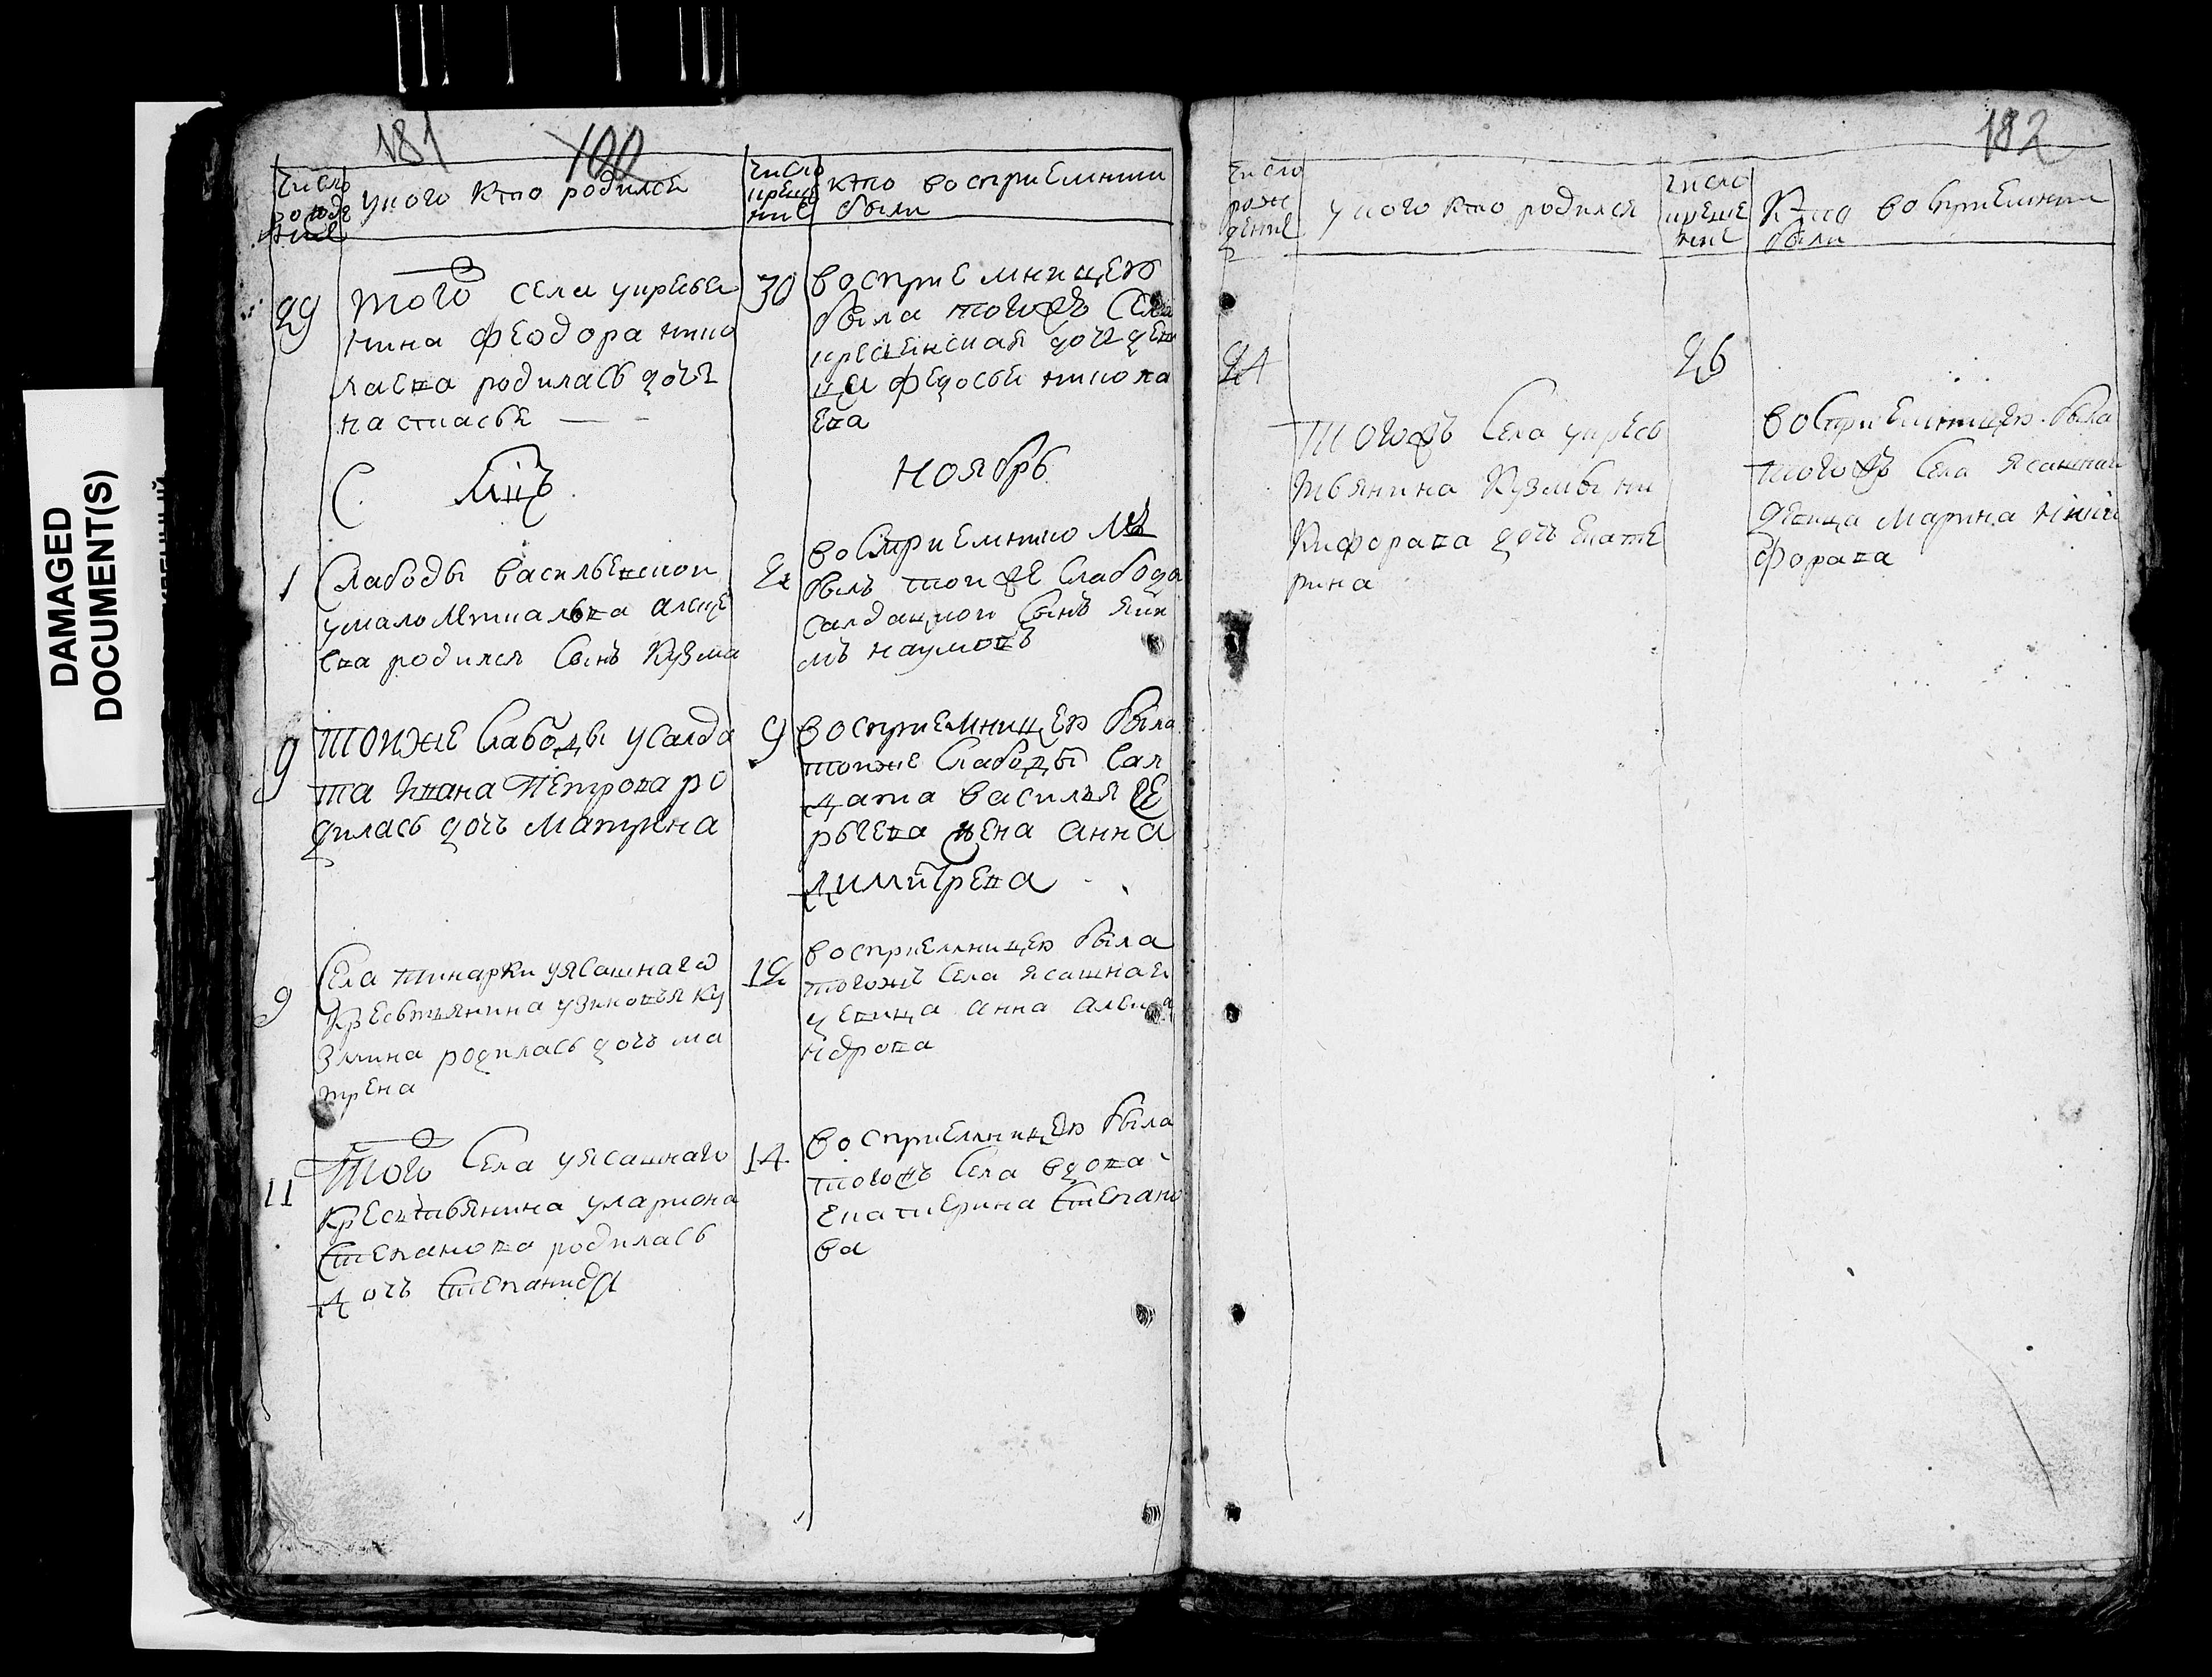 DAMAGED
DOCUMENT(S)
181
100
число
рожде
ние
у кого кто родился
число
креще
ние
кто восприемники
были
29
того села у кресья
нина феодора нико
лаева родилась дочь
настасья
30
восприемницею
была тогожъ села
кресьенская дочь деви
ца федосья никола
ева
С. мцъ
ноябрь
1
Слабоды васильевской
у малолетка алексе
ева родился сынъ кузма
2
восприемникомъ
былъ тойже слабоды
салдацкой сынъ яки
мъ наумовъ
9
тойже слабоды у салда
та Ивана Петрова ро
дилась дочь матрина
9
восприемницею была
тойже слабоды сал
дата василья
жена анна
димитрева
9
Села тинарки у ясашнаго
крестьянина у зиновья ку
змина родилась дочь ма
трена
12
восприемницею была
тогожъ села ясашная
девица анна алекса
ндрова
11
того села у ясашнаго
крестьянина у лариона
степанова родилась
дочь степанида
14
восприемницею была
тогожъ села вдова
екатиерина степано
ва
182
число
рож
дение
у кого кто родился
число
креще
ние
кто восприемники
были
24
тогожъ села у кресь
тьянина кузмы ни
кифорава дочь екате
рина
26
восприемницею была
тогожъ села ясашная
девица марина ники
форава